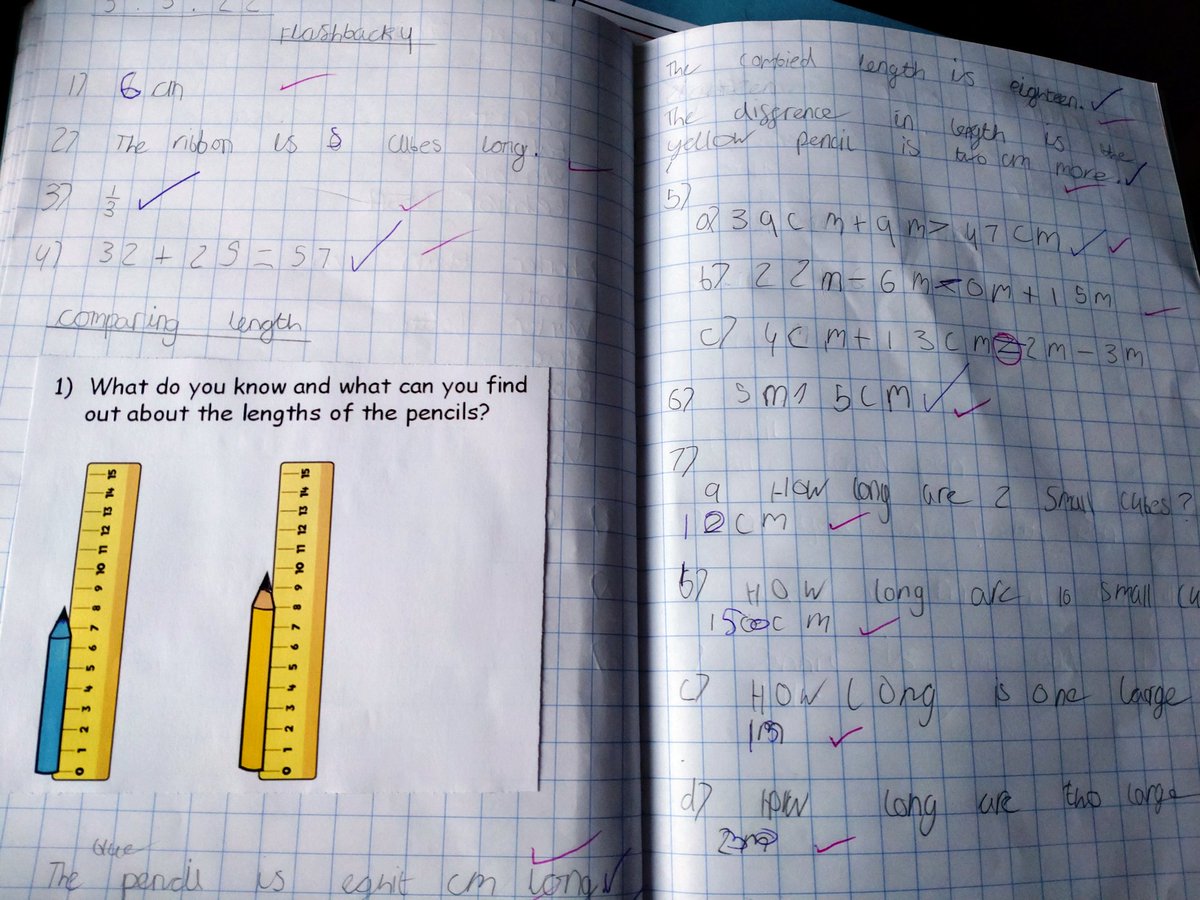 3.3.22
Flashback 4
1) 6 cm
2) The ribbon is 5 cubes long.
3) 1/3
4) 32 + 25 = 57
comparing length
1) What do you know and what can you find
out about the lengths of the pencils?
0 1 2 3 4 5 6 7 8 9 10 11 12 13 14 15
0 1 2 3 4 5 6 7 8 9 10 11 12 13 14 15
blue
The pencil is eghit cm long
The combied length is eighteen.
The diffrence in length is the
yellow pencil is two cm more.
5)
a) 39cm + 9m > 47cm
b) 22m - 6m < 0m + 15m
c) 4cm + 13cm = 2m - 3m
6) 5m 1 5cm
7)
a How long are 2 small cubes?
10cm
b) How long are 10 small cu
c) How long is one large
1m
d) How long are two large